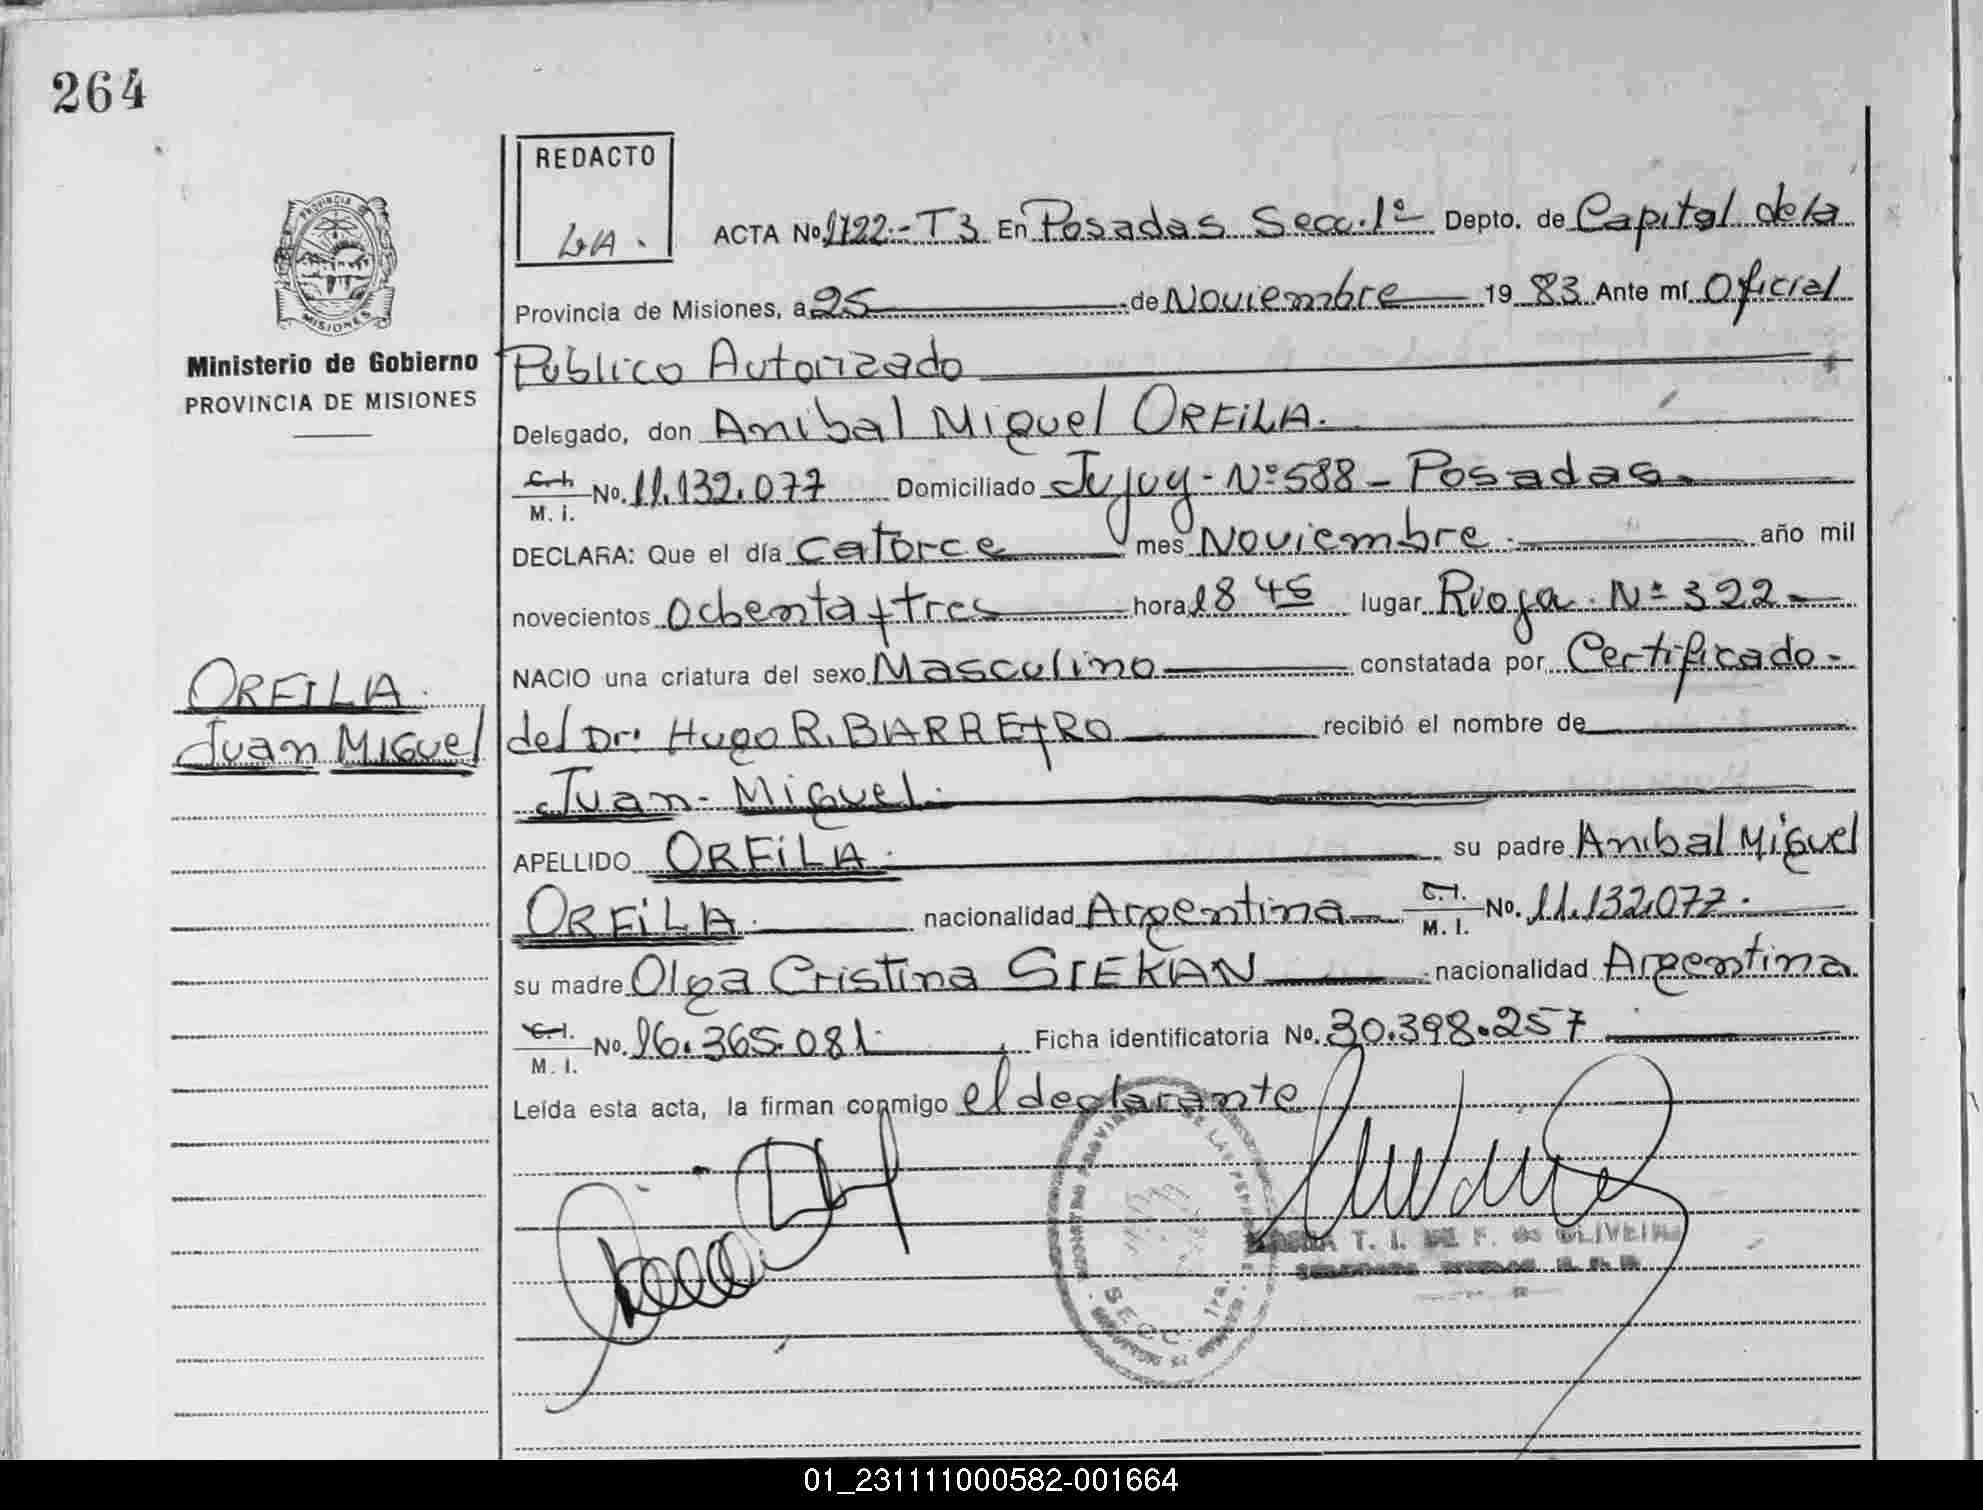 264
REDACTO
LA.
ACTA No. 1722.- T3 En Posadas Secc. 1ª Depto. de Capital de la
Provincia de Misiones, a 25 de Noviembre 19 83 Ante mí Oficial
Público Autorizado
PROVINCIA DE
MISIONES
Ministerio de Gobierno
PROVINCIA DE MISIONES
Delegado, don Anibal Miguel ORFILA.
C.I.
M. I. No. 11.132.077 Domiciliado Jujuy - Nº 588 - Posadas
DECLARA: Que el día catorce mes Noviembre año mil
novecientos ochenta y tres hora 18 45 lugar Rioja Nº 322-
NACIO una criatura del sexo Masculino constatada por Certificado-
ORFILA.
Juan Miguel
del Dr. Hugo R. BARREYRO recibió el nombre de
Juan - Miguel.
APELLIDO ORFILA. su padre Anibal Miguel
ORFILA. nacionalidad Argentina C.I.
M. I. No. 11.132.077.
su madre Olga Cristina SIEKAN nacionalidad Argentina
C.I.
M. I. No. 16.365.081 Ficha identificatoria No. 30.398.257
Leída esta acta, la firman conmigo el declarante
T. I. DE F. de OLIVEIRA
SECC. 1ra.
01_231111000582-001664